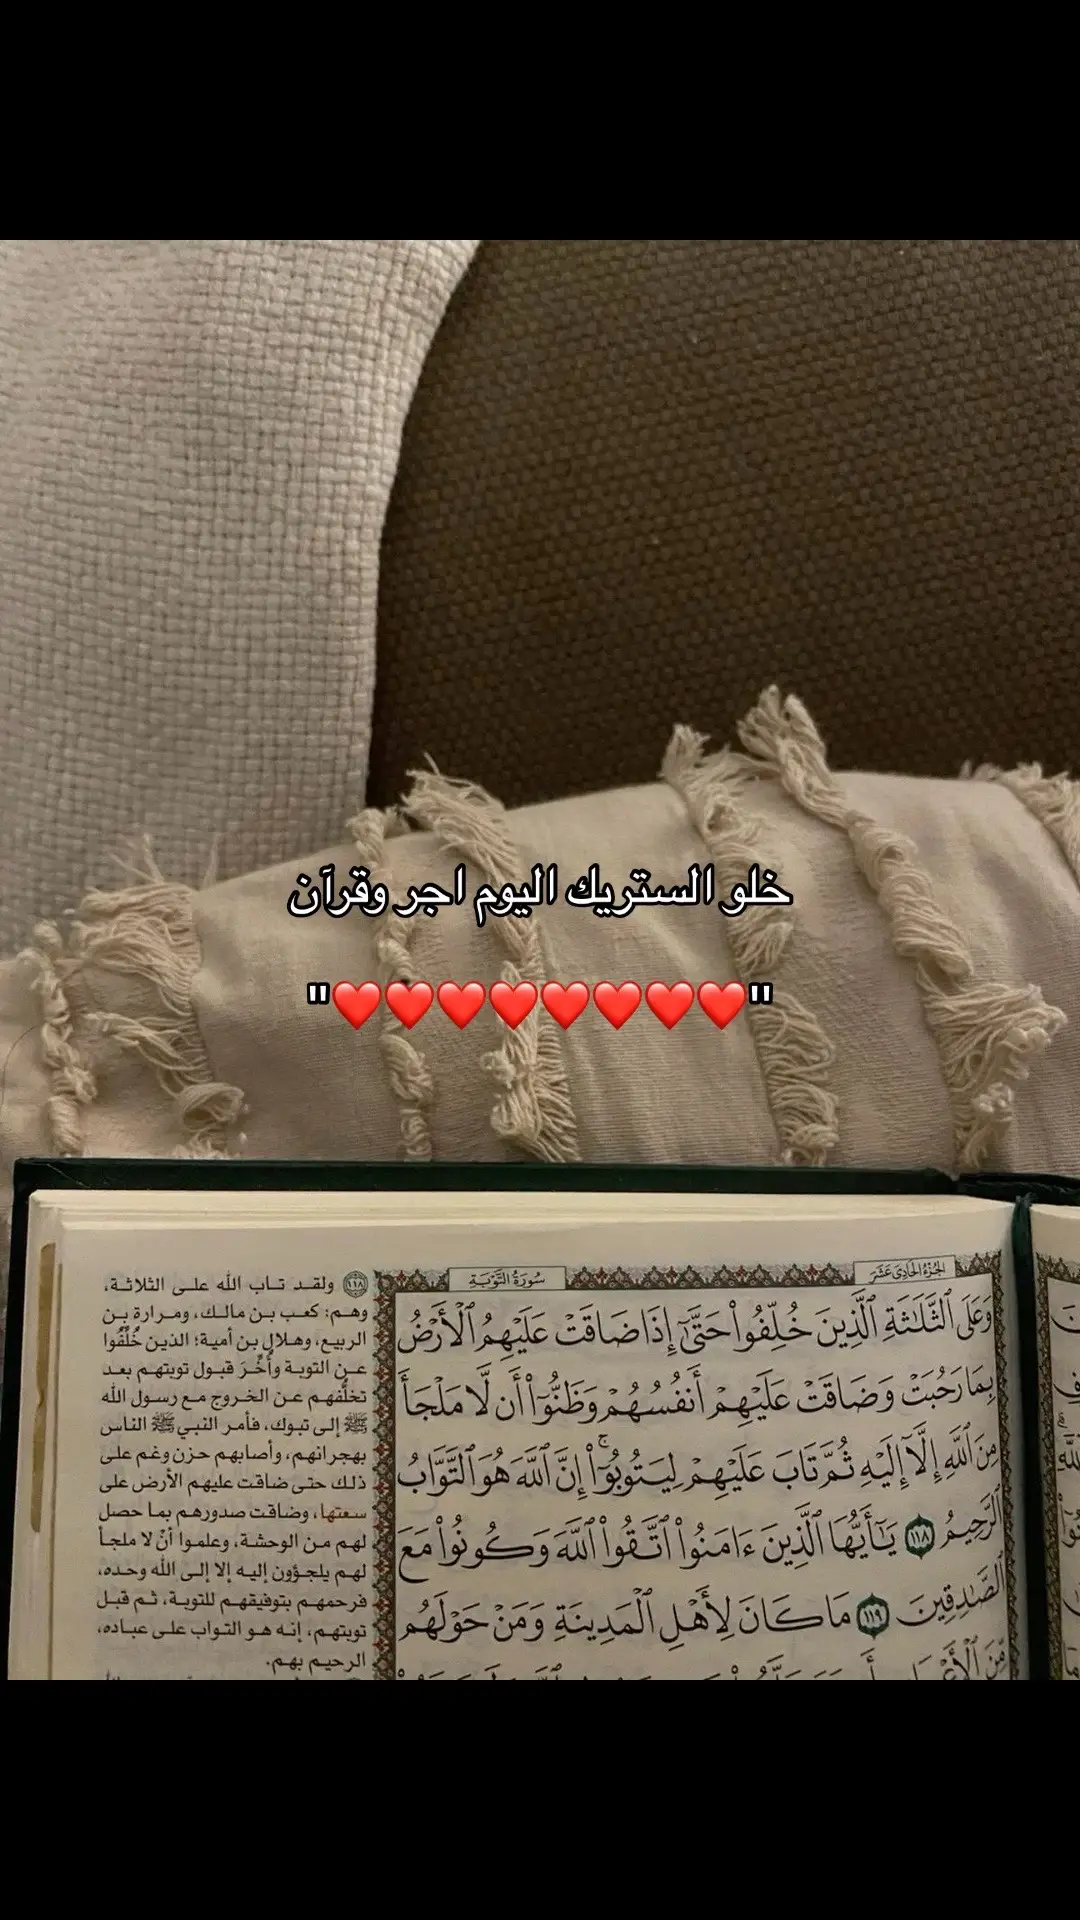 خلو الستريك اليوم اجر وقرآن
"❤️❤️❤️❤️❤️❤️❤️❤️"
الجزء الحادي عشر
سورة التوبة
وَعَلَى ٱلثَّلَٰثَةِ ٱلَّذِينَ خُلِّفُوا۟ حَتَّىٰٓ إِذَا ضَاقَتْ عَلَيْهِمُ ٱلْأَرْضُ
بِمَا رَحُبَتْ وَضَاقَتْ عَلَيْهِمْ أَنفُسُهُمْ وَظَنُّوٓا۟ أَن لَّا مَلْجَأَ
مِنَ ٱللَّهِ إِلَّآ إِلَيْهِ ثُمَّ تَابَ عَلَيْهِمْ لِيَتُوبُوٓا۟ ۚ إِنَّ ٱللَّهَ هُوَ ٱلتَّوَّابُ
ٱلرَّحِيمُ ١١٨ يَٰٓأَيُّهَا ٱلَّذِينَ ءَامَنُوا۟ ٱتَّقُوا۟ ٱللَّهَ وَكُونُوا۟ مَعَ
ٱلصَّٰدِقِينَ ١١٩ مَا كَانَ لِأَهْلِ ٱلْمَدِينَةِ وَمَنْ حَوْلَهُم
١١٨ ولقد تاب الله على الثلاثة،
وهم: كعب بن مالك، ومرارة بن
الربيع، وهلال بن أمية؛ الذين خُلِّفُوا
عن التوبة وأُخِّرَ قبول توبتهم بعد
تخلُّفهم عن الخروج مع رسول الله
ﷺ إلى تبوك، فأمر النبي ﷺ الناس
بهجرانهم، وأصابهم حزن وغم على
ذلك حتى ضاقت عليهم الأرض على
سعتها، وضاقت صدورهم بما حصل
لهم من الوحشة، وعلموا أنْ لا ملجأ
لهم يلجؤون إليه إلا إلى الله وحده،
فرحمهم بتوفيقهم للتوبة، ثم قبل
توبتهم، إنه هو التواب على عباده،
الرحيم بهم.